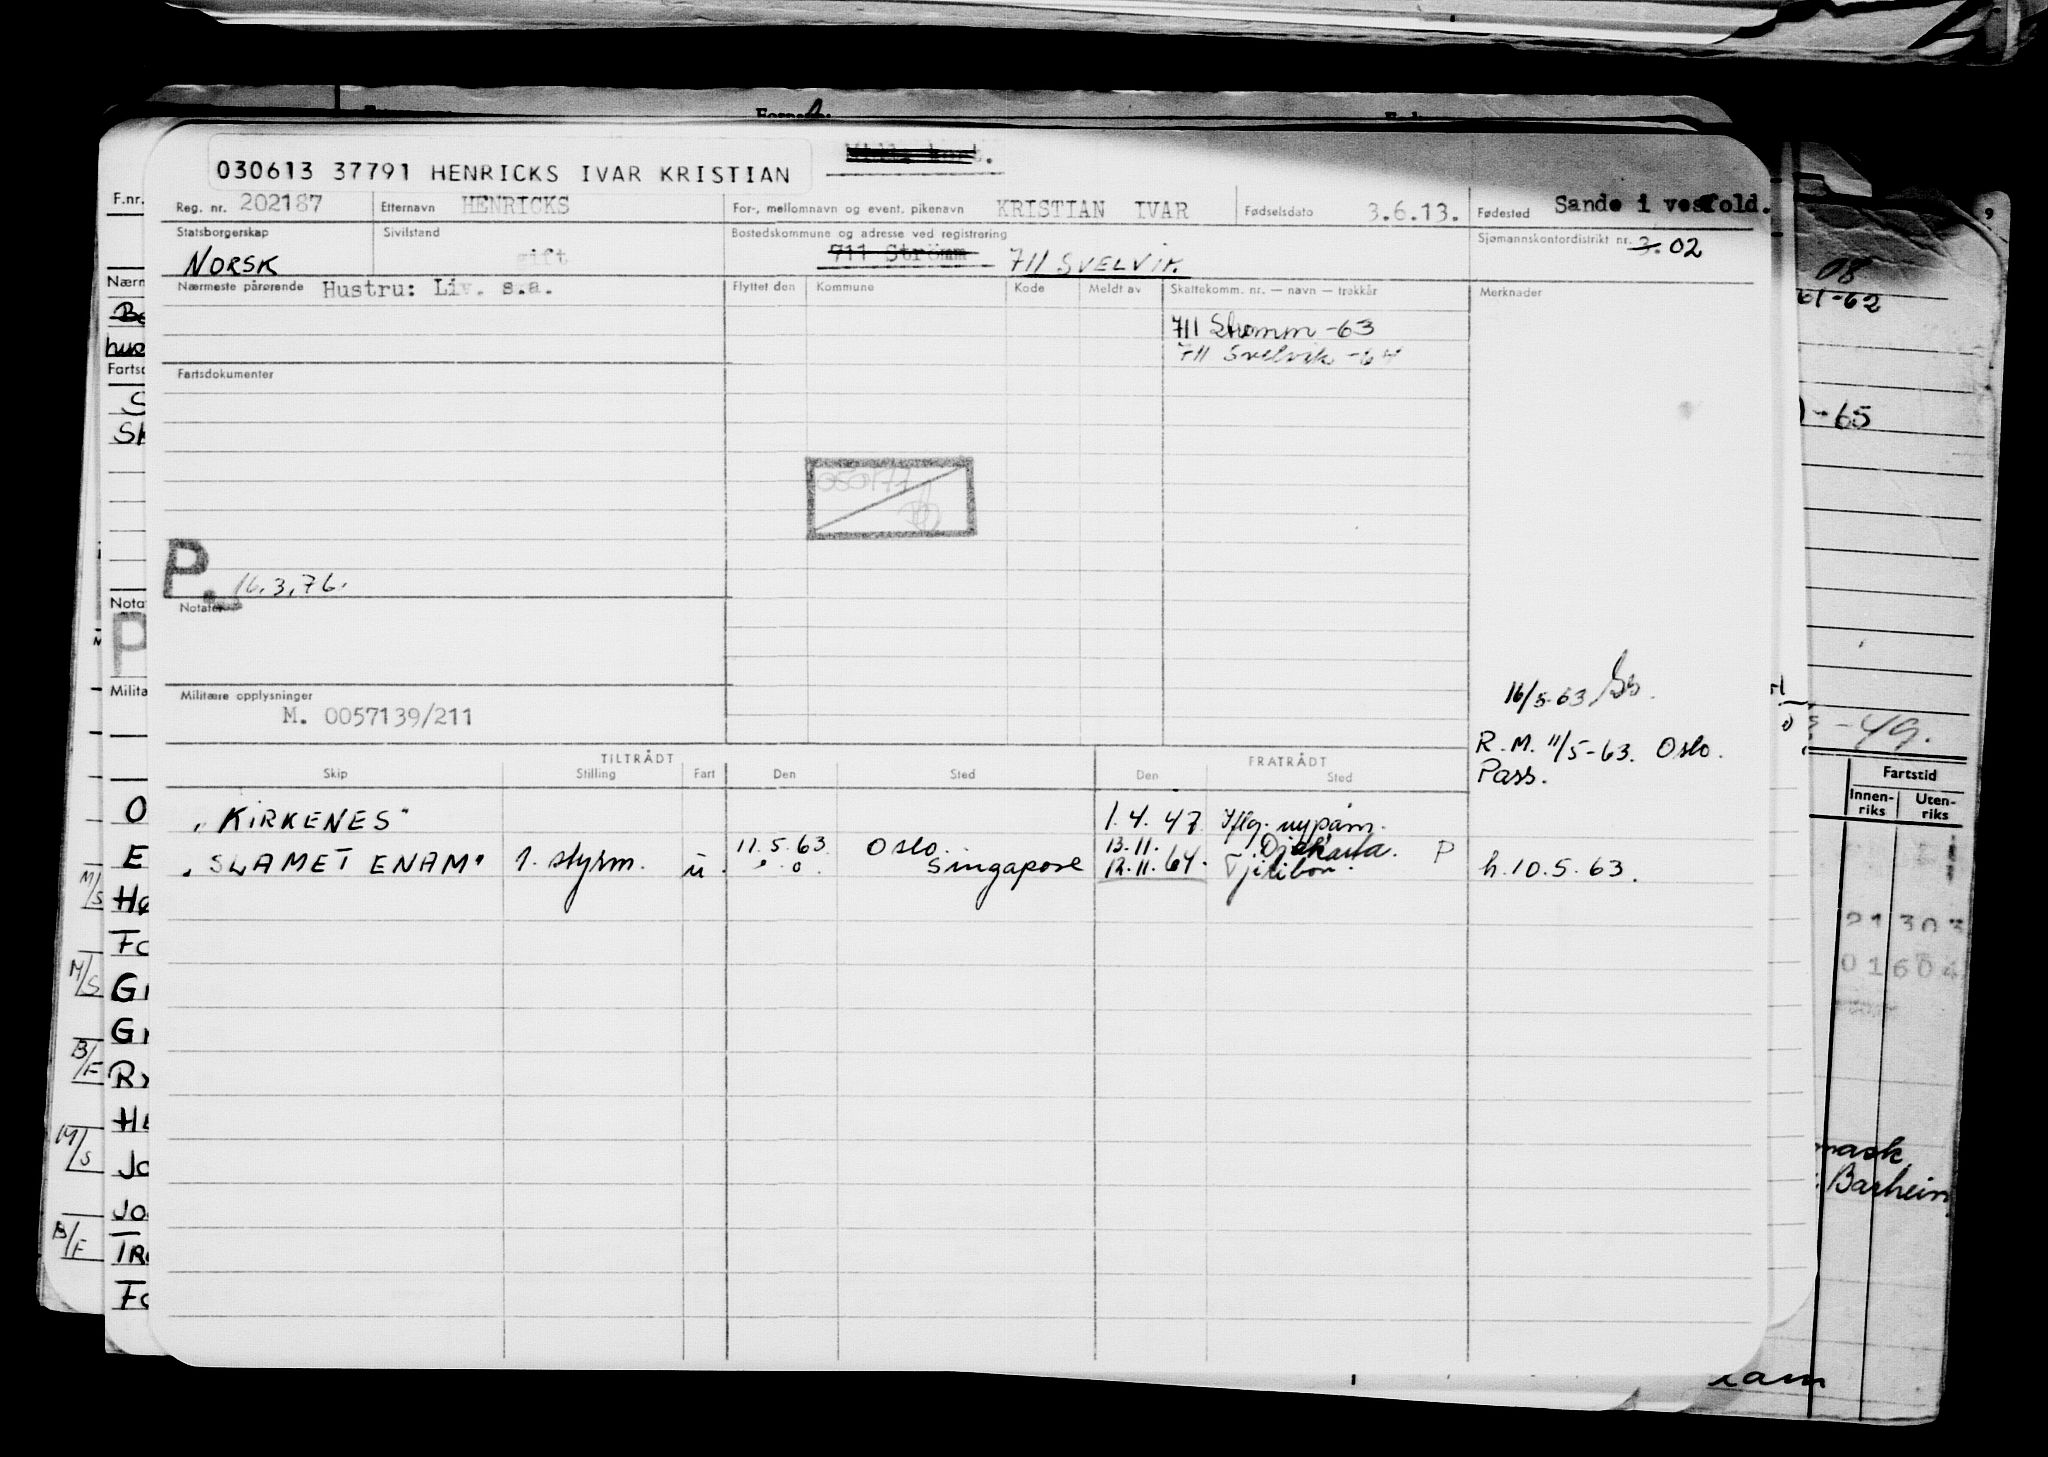 030613 37791 HENRICKS IVAR KRISTIAN
Reg. nr. 202187 Etternavn HENRICKS For-, mellomnavn og event. pikenavn KRISTIAN IVAR Fødselsdato 3.6.13. Fødested Sande i vesfold.
Statsborgerskap Sivilstand Bostedskommune og adresse ved registrering Sjømannskontordistrikt nr. 3. 02
NORSK gift 711 Strömm 711 SVELVIK
Nærmeste pårørende Hustru: Liv. s.a. Flyttet den Kommune Kode Meldt av Skattekomm. nr. — navn — trekkår Merknader
711 Strømm -63
711 Svelvik -64
Fartsdokumenter
P. 16.3.76.
Notater
Militære opplysninger
M. 0057139/211
16/5-63
R.M. 11/5-63. Oslo.
Pass.
TILTRÅDT FRATRÅDT
Skip Stilling Fart Den Sted Den Sted
"KIRKENES" 1.4.47 Iflg. nypåm.
11.5.63 Oslo. 13.11. Djakarta. P
"SLAMET ENAM" 1. styrm. u. " o. Singapore 12.11.64. Tjiribon. h.10.5.63.
F.nr.
Nærm
Fartsd
Nota
P
Milita
O
E
M/S Hø
Fo
M/S G
G
B/F R
H
M/S Jo
Jo
B/F TR
Fo
08
61-62
-65
-49.
Fartstid
Innen-
riks
Uten-
riks
21 303
01 604
mask
Barhein